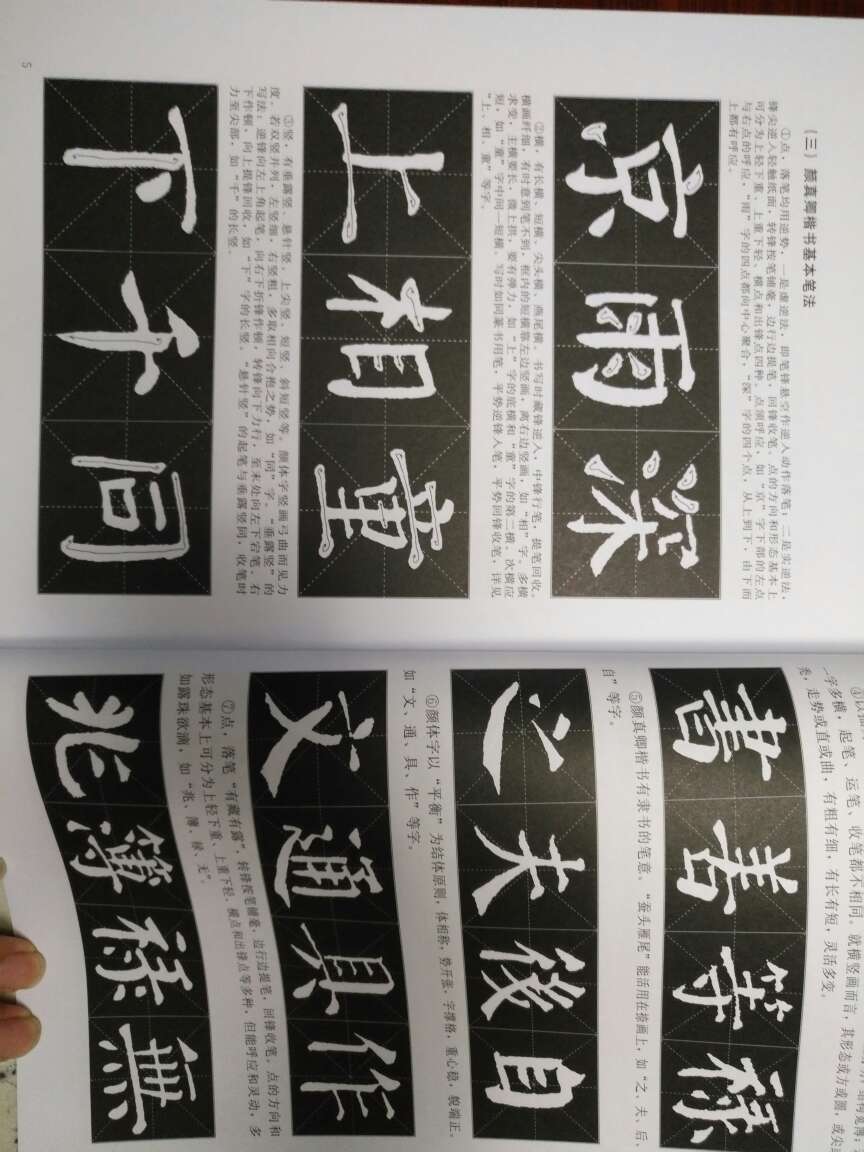 (三) 颜真卿楷书基本笔法
①点,落笔均用逆势,一是虚逆法,即笔锋悬空作逆入动作落笔;二是实逆法,
锋尖逆入轻触纸面,转锋按笔铺毫,边行边提笔,回锋收笔。点的方向和形态基本上
可分为上轻下重、上重下轻、横点和出锋点四种。点须呼应,如“京”字下部的左点
与右点的呼应,“雨”字的四点都向中心聚合,“深”字的四个点,从上到下,由下而
上都有呼应。
京雨深
②横,有长横、短横、尖头横、燕尾横。书写时藏锋逆入,中锋行笔,提笔回收。
横画纤细,有时意到笔不到,框内的短横靠左边竖画,离右边竖画,如“相”字。多横
求变,主横要长,微上拱,要有弹力,如“上”字的底横和“童”字的第二横。次横应
短,如“童”字中间一短横。写时如同篆书用笔,平势逆锋入笔,平势回锋收笔,详见
“上、相、童”等字。
上相童
③竖,有垂露竖、悬针竖、上尖竖、短竖、斜短竖等。颜体字竖画弓曲而见力
度。若双竖并列,左竖细,右竖粗,多取相向合抱之势,如“同”字。“垂露竖”的
写法:逆锋向左上角起笔,向右下折锋作顿,转锋向下力行,至末处向左下宕笔,右
下作顿,向上提锋回收,如“下”字的长竖。“悬针竖”的起笔与垂露竖同,收笔时
力至尖部,如“千”的长竖。
下千同
5
一字多横,起笔、运笔、收笔都不相同。就横竖画而言,其形态或方或圆,或尖或
秃,走势或直或曲,有粗有细,有长有短,灵活多变。
書善等稱
⑤颜真卿楷书有隶书的笔意。“蚕头雁尾”能活用在捺画上,如“之、夫、后、
自”等字。
之夫後自
⑥颜体字以“平衡”为结体原则,体相称,势开张,字撑格,重心稳,貌端正,
如“文、通、具、作”等字。
文通具作
⑦点,落笔“有藏有露”,转锋按笔铺毫,边行边提笔,回锋收笔。点的方向和
形态基本上可分为上轻下重、上重下轻、横点和出锋点等多种,但能呼应和灵动,多
如露珠欲滴,如“兆、薄、禄、无”。
兆簿禄無